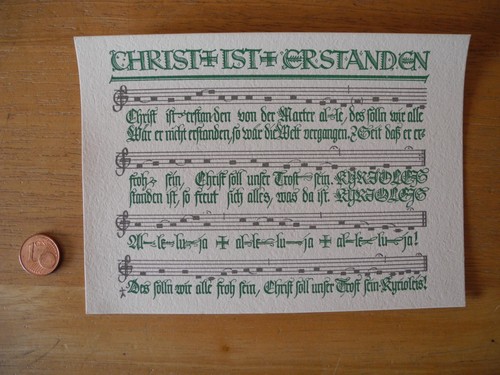 CHRIST + IST + ERSTANDEN
Christ ist erstanden von der Marter al-le, des solln wir alle
Wär er nicht erstanden, so wär die Welt vergangen. 2. Seit daß er er-
froh sein, Christ soll unser Trost sein. KYRIOLEIS
standen ist, so freut sich alles, was da ist. KYRIOLEIS
Al-le-lu-ja + al-le-lu-ja + al-le-lu-ja!
Des solln wir alle froh sein, Christ soll unser Trost sein. Kyrioleis!
1